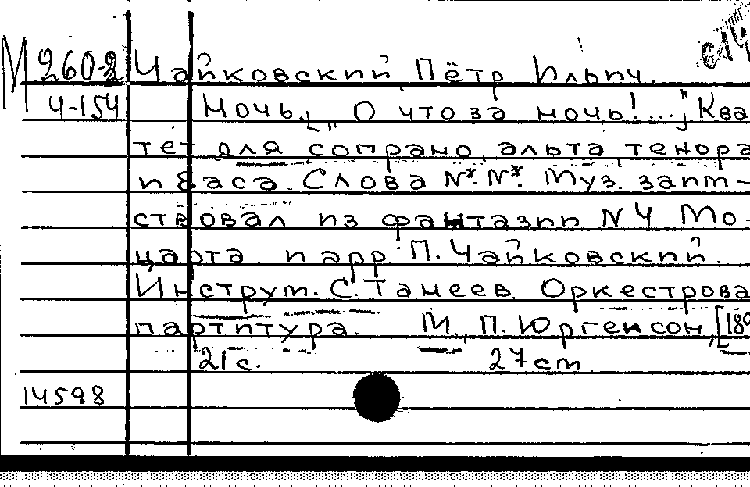 М 260-2 Чайковский, Пётр Ильич.
Ч-154 Ночь. [„О что за ночь!...„] Ква
тет для сопрано, альта, тенора
и баса. Слова N*. N*. Муз. заим-
ствовал из фантазии N 4 Мо-
царта и арр. П. Чайковский.
Инструм. С. Танеев. Оркестрова
партитура. М., П. Юргенсон, [189
21 с. 27 cm
14598